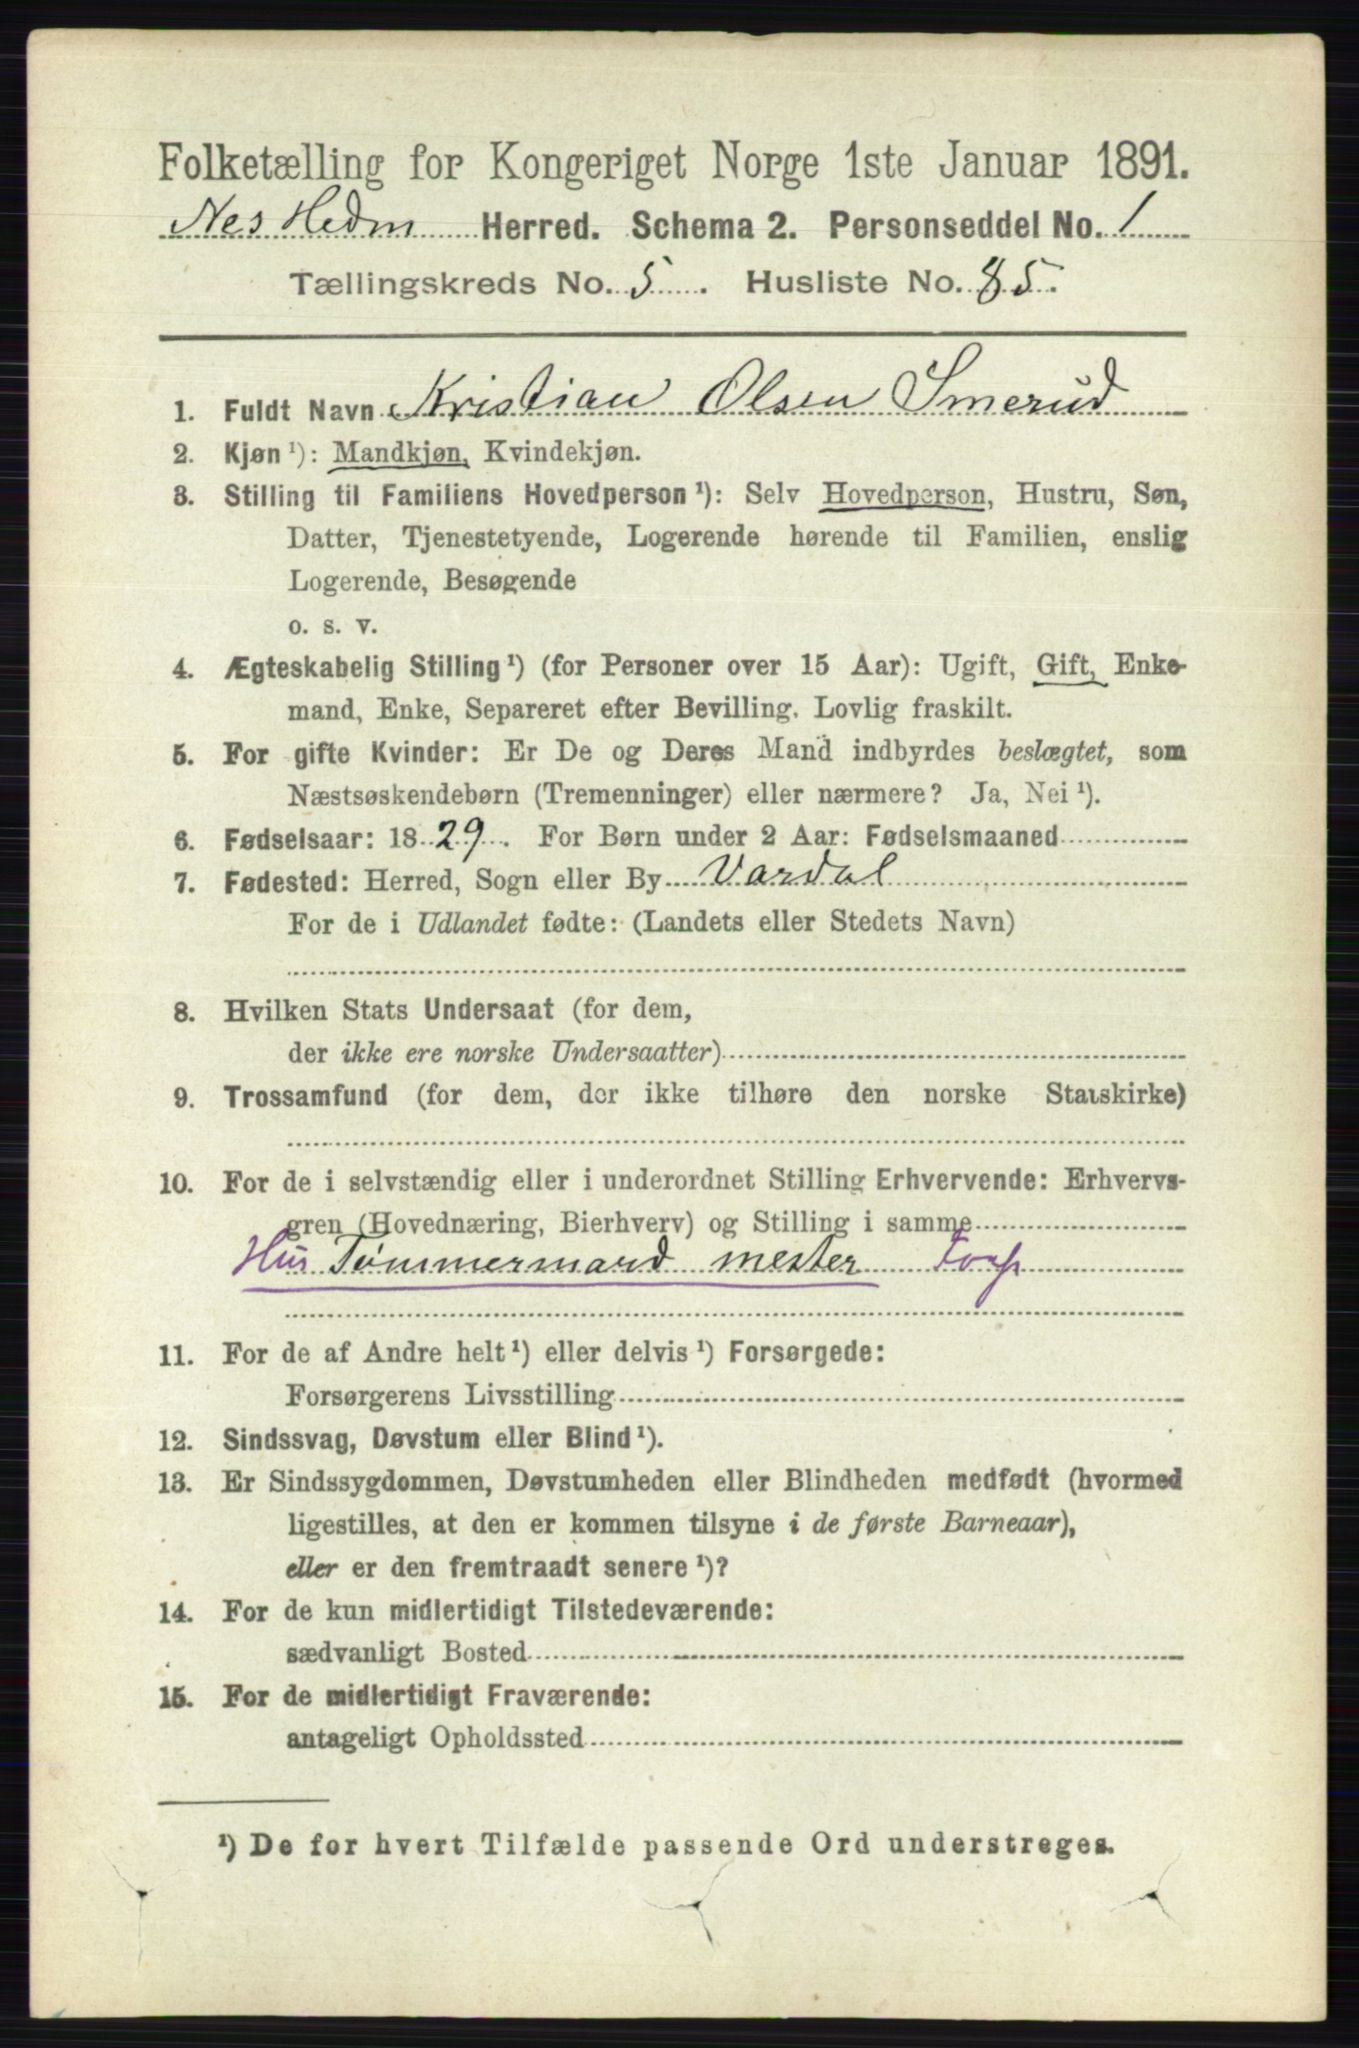 Folketælling for Kongeriget Norge 1ste Januar 1891.
Nes Hedm Herred. Schema 2. Personseddel No. 1
Tællingskreds No. 5. Husliste No. 85.
1. Fuldt Navn Kristian Olsen Smerud
2. Kjøn ¹): Mandkjøn, Kvindekjøn.
3. Stilling til Familiens Hovedperson ¹): Selv Hovedperson, Hustru, Søn,
Datter, Tjenestetyende, Logerende hørende til Familien, enslig
Logerende, Besøgende
o. s. v.
4. Ægteskabelig Stilling ¹) (for Personer over 15 Aar): Ugift, Gift, Enke-
mand, Enke, Separeret efter Bevilling. Lovlig fraskilt.
5. For gifte Kvinder: Er De og Deres Mand indbyrdes beslægtet, som
Næstsøskendebørn (Tremenninger) eller nærmere? Ja, Nei ¹).
6. Fødselsaar: 1829. For Børn under 2 Aar: Fødselsmaaned
7. Fødested: Herred, Sogn eller By Vardal
For de i Udlandet fødte: (Landets eller Stedets Navn)
8. Hvilken Stats Undersaat (for dem,
der ikke ere norske Undersaatter)
9. Trossamfund (for dem, der ikke tilhøre den norske Statskirke)
10. For de i selvstændig eller i underordnet Stilling Erhvervende: Erhvervs-
gren (Hovednæring, Bierhverv) og Stilling i samme
Hus Tømmermand mester
11. For de af Andre helt ¹) eller delvis ¹) Forsørgede:
Forsørgerens Livsstilling
12. Sindssvag, Døvstum eller Blind ¹).
13. Er Sindssygdommen, Døvstumheden eller Blindheden medfødt (hvormed
ligestilles, at den er kommen tilsyne i de første Barneaar),
eller er den fremtraadt senere ¹)?
14. For de kun midlertidigt Tilstedeværende:
sædvanligt Bosted
15. For de midlertidigt Fraværende:
antageligt Opholdssted
¹) De for hvert Tilfælde passende Ord understreges.